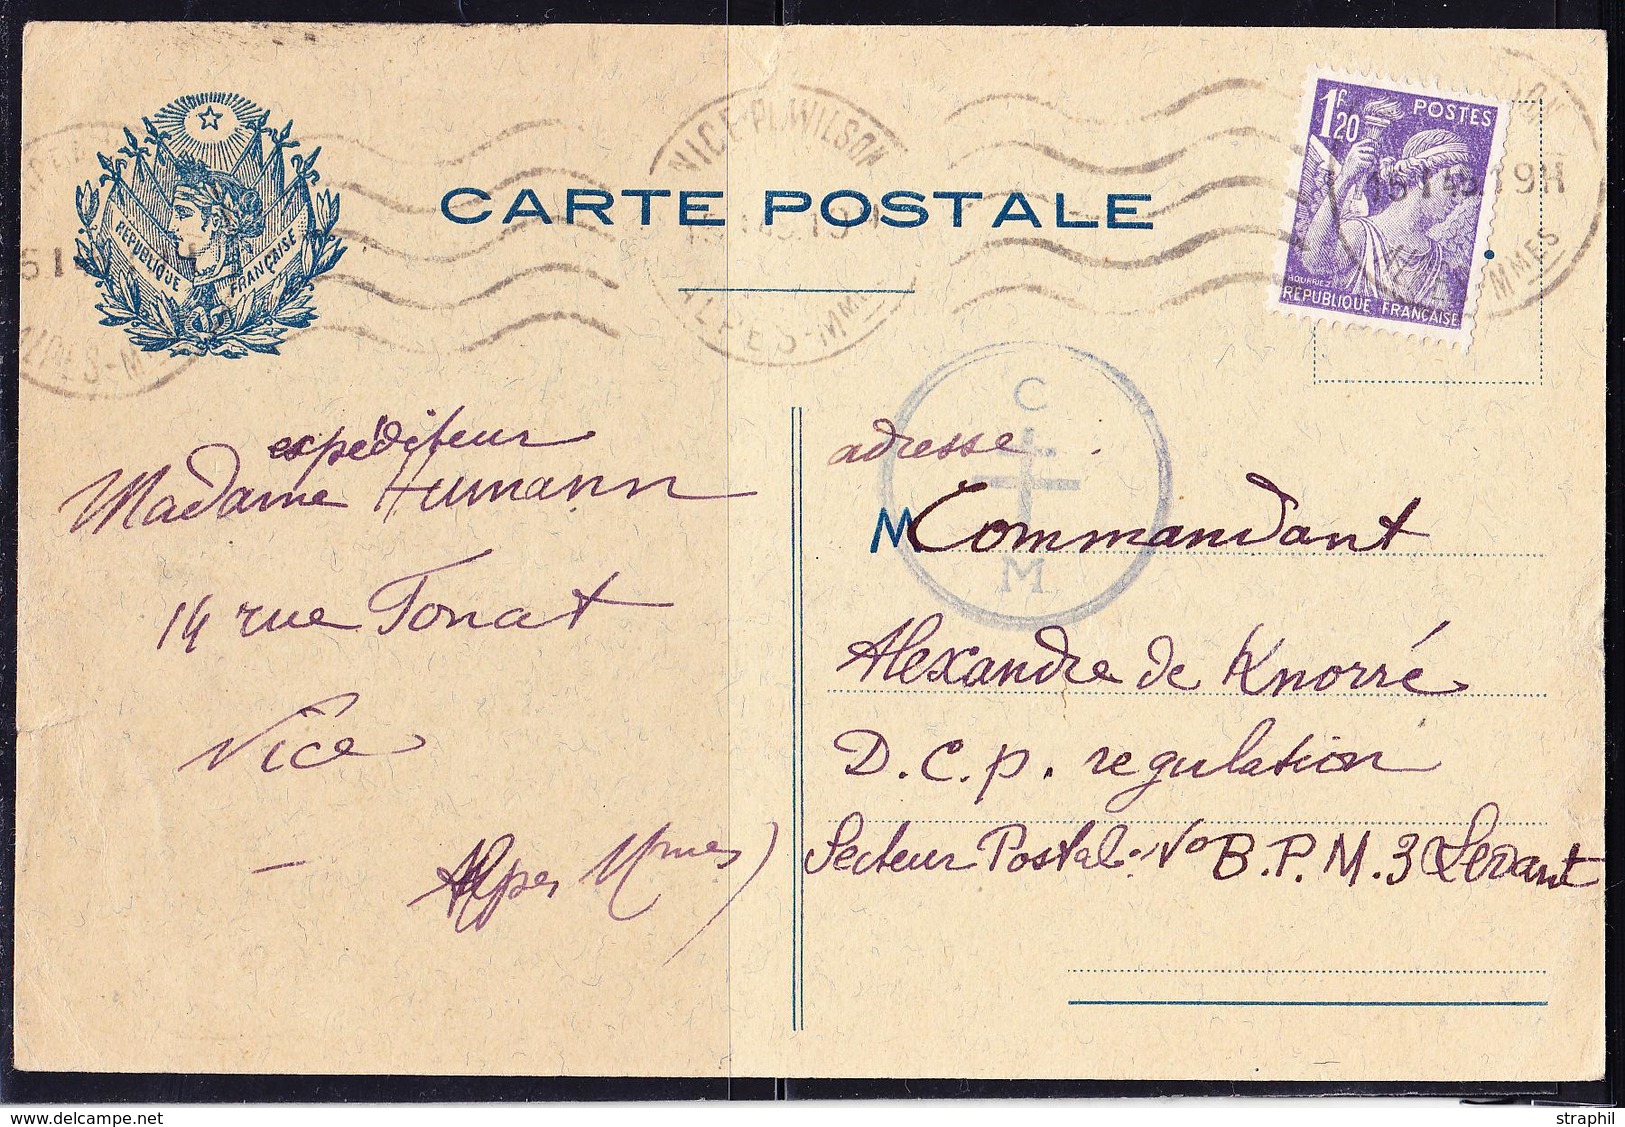 RÉPUBLIQUE FRANÇAISE
CARTE POSTALE
NICE-PL.WILSON
ALPES-MMES
1F20
POSTES
19H
HOURRIEZ
RÉPUBLIQUE FRANÇAISE
expéditeur
Madame Humann
14 rue Tonat
Nice
Alpes Mmes)
C
M
adresse
M Commandant
Alexandre de Knorré
D.C.p. regulation
Secteur Postal No B.P.M. 3 Levant
delcampe.net
straphil